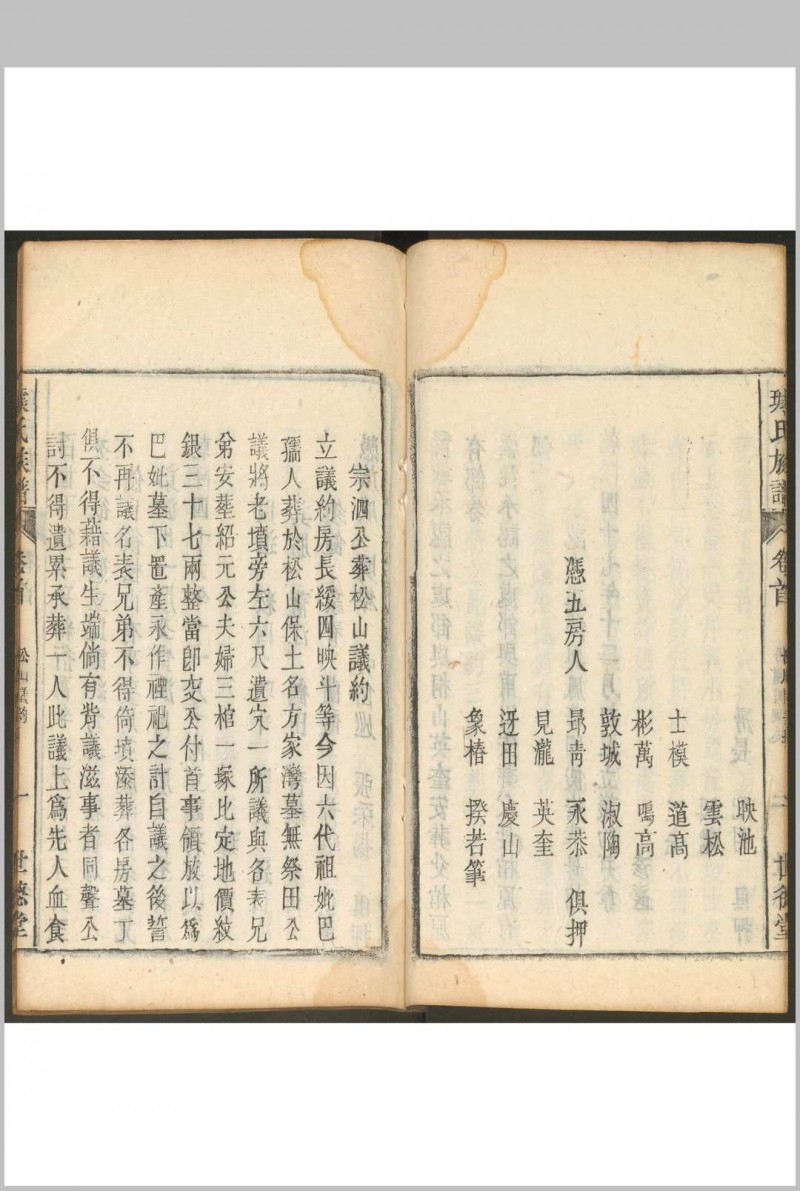 映池
雲松
士模 道高
彬萬 鳴高
敦城 淑陶
憑五房人 昻靑 永恭 俱押
見瀧 英奎
迓田 慶山
象椿 揆若筆
卷首
宗泗公葬松山議約
立議約房長綏四映斗等今因六代祖妣巴
孺人葬於松山保土名方家灣墓無祭田公
議將老墳旁左六尺遺穴一所議與各表兄
弟安塟紹元公夫婦三棺一塚比定地價紋
銀三十七兩整當卽交公付首事領放以爲
巴妣墓下置產永作禋祀之計自議之後誓
不再議名表兄弟不得倚墳添葬各房墓丁
俱不得藉議生端倘有背議滋事者同聲公
討不得遺累承葬一人此議上爲先人血食
氏族譜
卷首
松山議約
一
世德堂